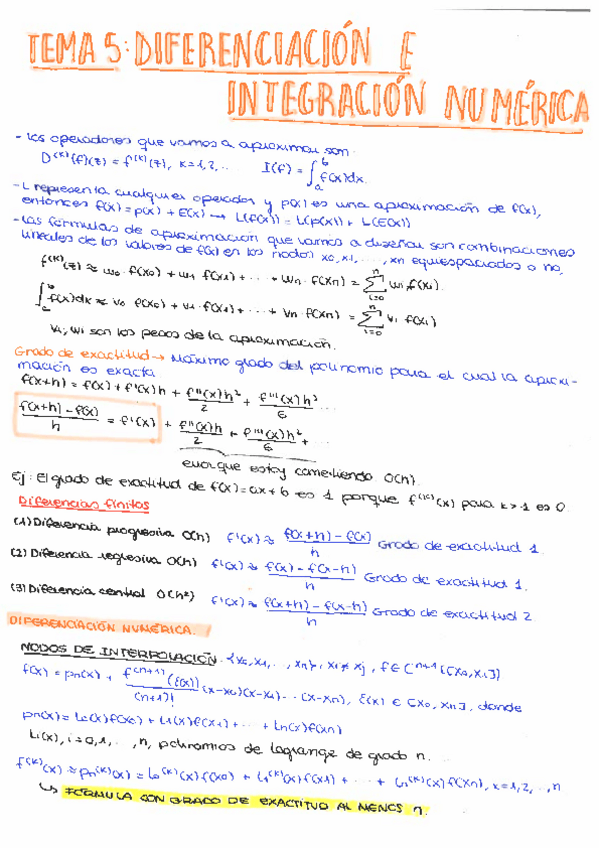 TEMA 5: DIFERENCIACIÓN E
INTEGRACIÓN NUMÉRICA
- Los operadores que vamos a aproximar son:
D^(k)(f)(z) = f^(k)(z), k=1,2,.. I(f) = ∫_a^b f(x)dx.
- L representa cualquier operador y p(x) es una aproximación de f(x),
entonces f(x) = p(x) + E(x) → L(f(x)) = L(p(x)) + L(E(x))
- Las fórmulas de aproximación que vamos a diseñar son combinaciones
lineales de los valores de f(x) en los nodos x0, x1, ..., xn equiespaciados o no.
f^(k)(z) ≈ w0·f(x0) + w1·f(x1) + ... + wn·f(xn) = Σ_{i=0}^n wi f(xi).
∫_a^b f(x)dx ≈ v0·f(x0) + v1·f(x1) + ... + vn·f(xn) = Σ_{i=0}^n vi f(xi)
vi, wi son los pesos de la aproximación.
Grado de exactitud → Máximo grado del polinomio para el cual la aproxi-
mación es exacta
f(x+h) = f(x) + f'(x)h + f''(x)h²/2 + f'''(x)h³/6 ...
(f(x+h) - f(x))/h = f'(x) + f''(x)h/2 + f'''(x)h²/6 + ...
error que estoy cometiendo O(h).
Ej: El grado de exactitud de f(x) = ax + b es 1 porque f^(k)(x) para k>1 es 0.
Diferencias finitas
(1) Diferencia progresiva O(h) f'(x) ≈ (f(x+h) - f(x))/h Grado de exactitud 1
(2) Diferencia regresiva O(h) f'(x) ≈ (f(x) - f(x-h))/h Grado de exactitud 1.
(3) Diferencia central O(h²) f'(x) ≈ (f(x+h) - f(x-h))/h Grado de exactitud 2
DIFERENCIACIÓN NUMÉRICA.
NODOS DE INTERPOLACIÓN: {x0, x1, ..., xn}, xi ≠ xj, f ∈ C^(n+1)([x0, xn])
f(x) = pn(x) + f^(n+1)(ξ(x))/(n+1)! (x-x0)(x-x1)...(x-xn), ξ(x) ∈ [x0, xn], donde
pn(x) = L0(x)f(x0) + L1(x)f(x1) + ... + Ln(x)f(xn)
Li(x), i=0,1,...,n, polinomios de lagrange de grado n.
f^(k)(x) ≈ pn^(k)(x) = L0^(k)(x)f(x0) + L1^(k)(x)f(x1) + ... + Ln^(k)(x)f(xn), k=1,2,...,n
↳ FÓRMULA CON GRADO DE EXACTITUD AL MENOS n.